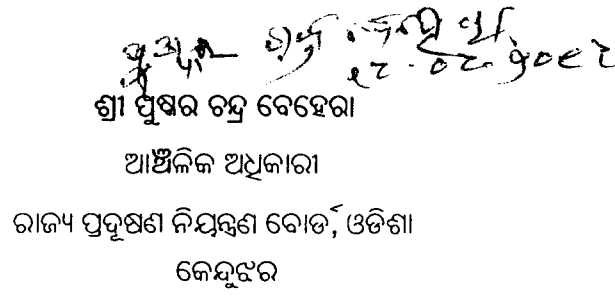 ଶ୍ରୀ ପୁଷ୍କର ଚନ୍ଦ୍ର ବେହେରା
ଆଞ୍ଚଳିକ ଅଧିକାରୀ
ରାଜ୍ୟ ପ୍ରଦୂଷଣ ନିୟନ୍ତ୍ରଣ ବୋର୍ଡ, ଓଡିଶା
କେନ୍ଦୁଝର